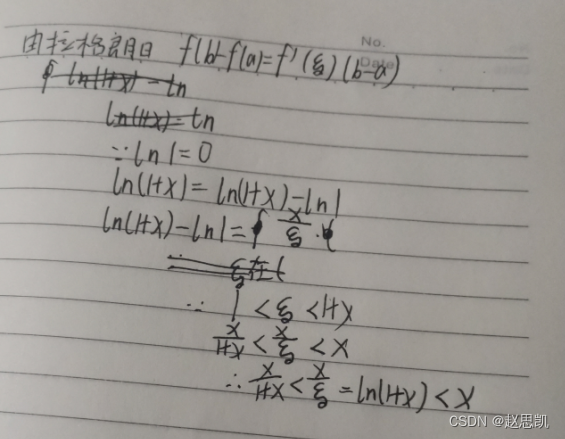 No.
Date
由拉格朗日 f(b)-f(a)=f'(ξ)(b-a)
ln(1+x)-ln
ln(1+x)=ln
∵ln1=0
ln(1+x)=ln(1+x)-ln1
ln(1+x)-ln1=x/ξ.
∵ 1<ξ<1+x
x/1+x<x/ξ<x
∴x/1+x<x/ξ=ln(1+x)<x
CSDN @赵思凯